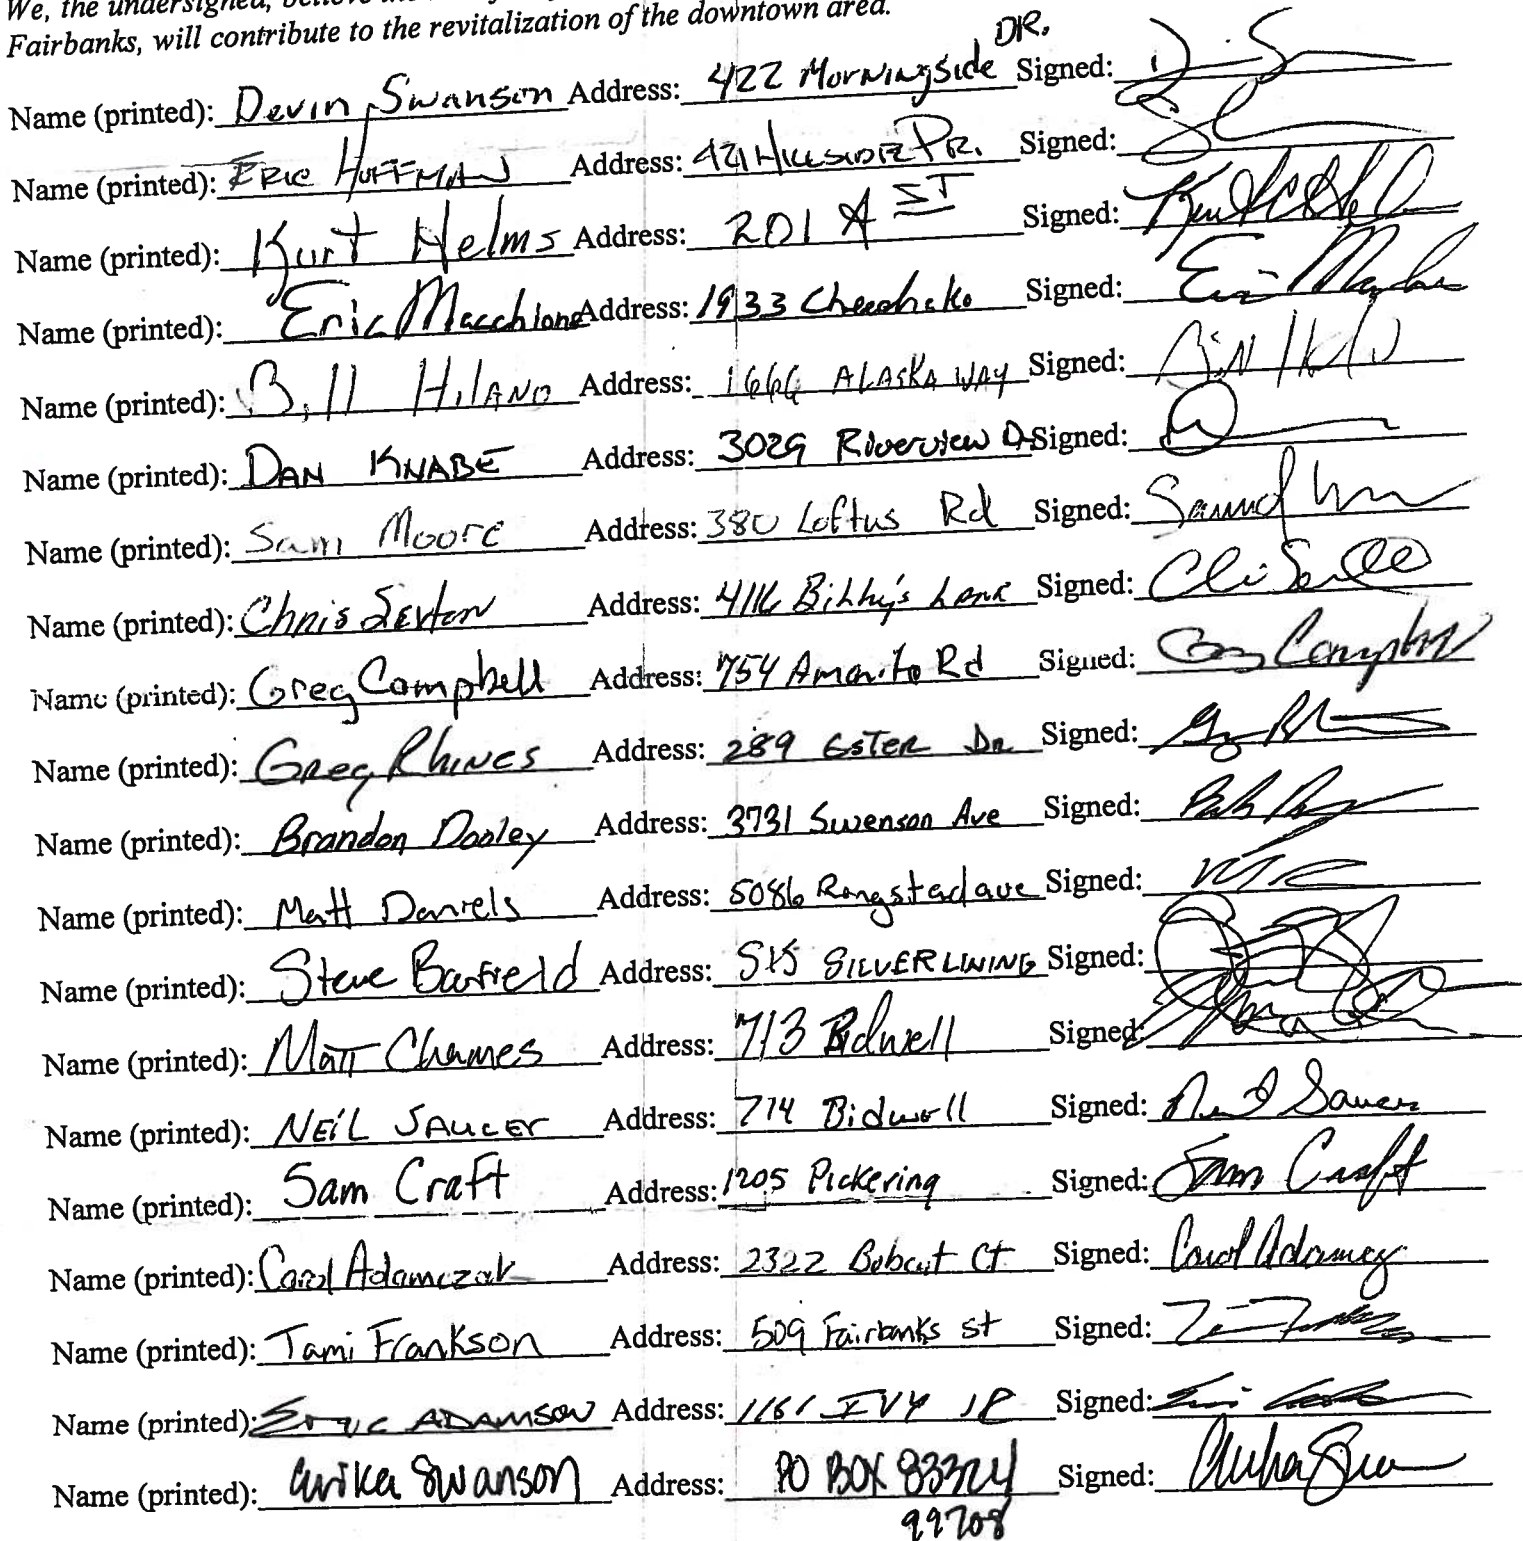 We, the undersigned, believe the
Fairbanks, will contribute to the revitalization of the downtown area.
Name (printed): Devin Swanson Address: 422 Morningside DR. Signed:
Name (printed): ERIC HOFFMAN Address: 421 HILLSIDE DR. Signed:
Name (printed): Kurt Helms Address: 201 A ST Signed:
Name (printed): Eric Macchione Address: 1933 Cheechako Signed:
Name (printed): Bill HILAND Address: 1666 ALASKA WAY Signed:
Name (printed): DAN KNABE Address: 3029 Riverview Signed:
Name (printed): Sam Moore Address: 380 Loftus Rd Signed:
Name (printed): Chris Sexton Address: 4116 Lane Signed:
Name (printed): Greg Campbell Address: 754 Rd Signed: Greg Campbell
Name (printed): Greg Rhines Address: 289 ESTER DR. Signed:
Name (printed): Brandon Dooley Address: 3731 Swenson Ave Signed:
Name (printed): Matt Daniels Address: 5086 Rongstad ave Signed:
Name (printed): Steve Barfield Address: SILVERLINING Signed:
Name (printed): Matt Chames Address: 713 Bidwell Signed:
Name (printed): NEIL SAUCER Address: 714 Bidwell Signed:
Name (printed): Sam Craft Address: 1205 Pickering Signed: Sam Craft
Name (printed): Carol Adamczak Address: 2322 Bobcat Ct Signed: Carol
Name (printed): Tami Frankson Address: 509 Fairbanks st Signed:
Name (printed): ADAMSON Address: 1161 IVY Signed:
Name (printed): Swanson Address: PO BOX 83324 Signed:
99708